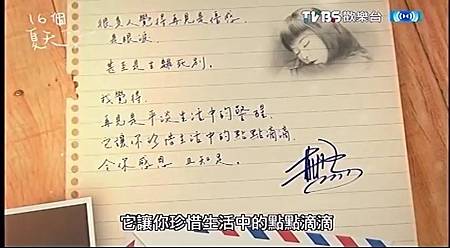 16個
夏天
TVBS歡樂台
很多人覺得再見是傷感
是眼淚
甚至是生離死別。
我覺得
再見是平淡生活中的警醒
它讓你珍惜生活中的點點滴滴
令你感恩 且知足。
它讓你珍惜生活中的點點滴滴